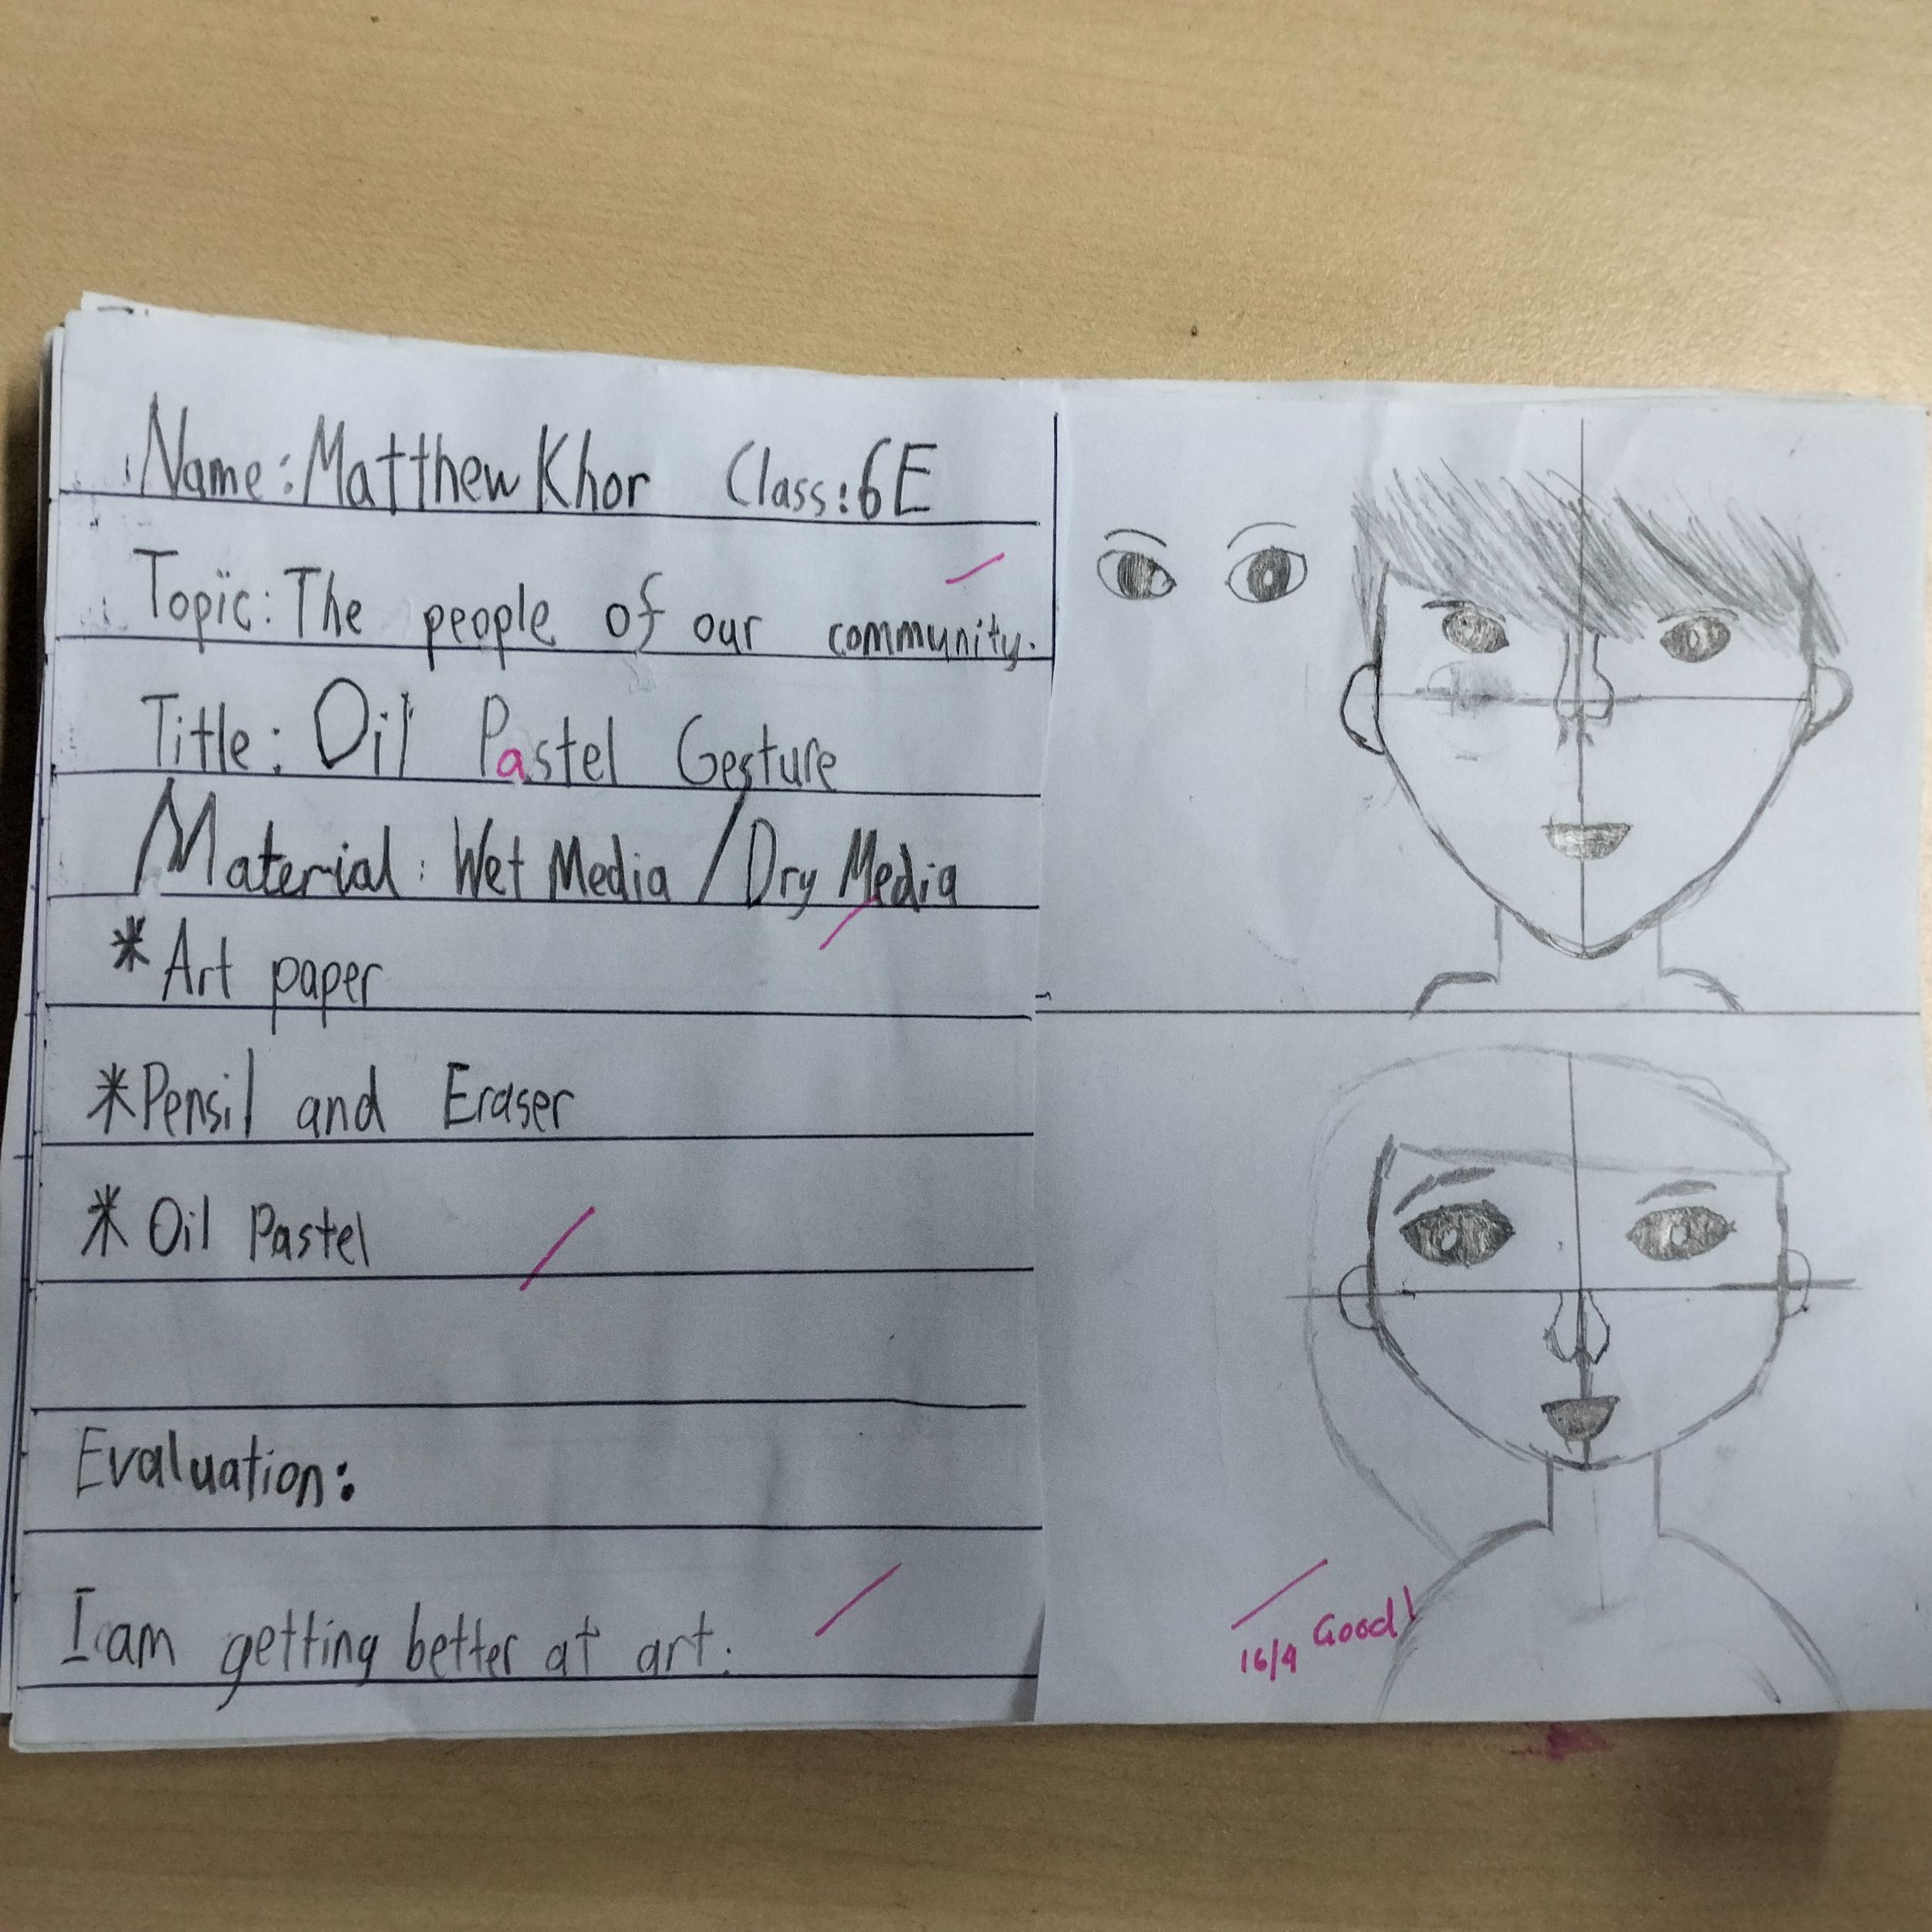 Name: Matthew Khor Class: 6E
Topic: The people of our community.
Title: Oil Pastel Gesture
Material: Wet Media / Dry Media
* Art paper
* Pensil and Eraser
* Oil Pastel
Evaluation:
I am getting better at art.
16/9 Good!